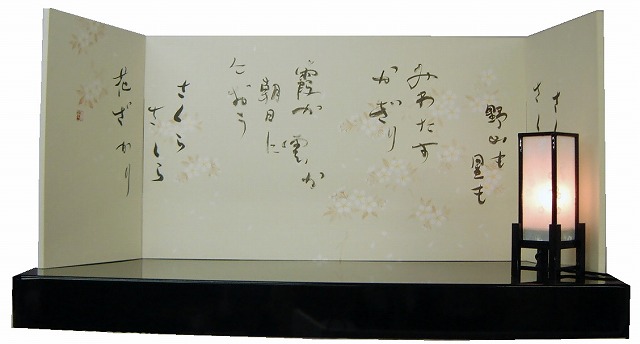 野山も
里も
みわたす
かぎり
霞か雲か
朝日に
におう
さくら
さくら
花ざかり